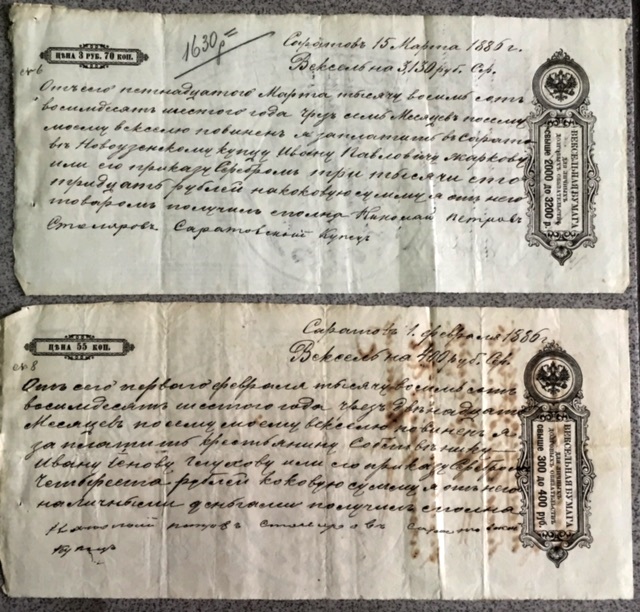 ЦѢНА 3 РУБ. 70 КОП.
1630 р
Саратовъ 15 Марта 1886 г.
№ 6
Вексель на 3,130 руб. Сер.
Отъ сего петнадцатого Марта тысячу восимь сотъ
восимдесятъ шистого года чрезъ семь Месяцевъ посему
моему векселю повиненъ я заплатить в Сарато
въ Новоузенскому купцу Ивону Павловичу Жаркову
или его приказу Серебромъ три тысячи сто
тридцать рублей накоковую сумму я отъ него
товаромъ получилъ сполна Николай Петровъ
Столяровъ Саратовский Купецъ
ВЕКСЕЛЬНАЯ БУМАГА
свыше 2000 до 3200 р.
ЦѢНА 55 КОП.
Саратовъ 1. февраля 1886 г
№ 8
Вексель на 400 руб. Ср.
Отъ сего первого февраля тысячу восимь сотъ
восимдесятъ шистого года чрезъ
Месяцевъ посему моему векселю повиненъ я
заплатить крестьянину Собственнику
Ивану Глухову или его приказу Серебромъ
четыреста рублей коковую сумму я отъ него
наличными деньгами получилъ сполна
Столяровъ
Купецъ
ВЕКСЕЛЬНАЯ БУМАГА
свыше 300 до 400 руб